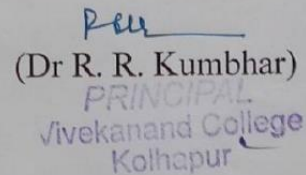 (Dr R. R. Kumbhar)
PRINCIPAL
Vivekanand College
Kolhapur